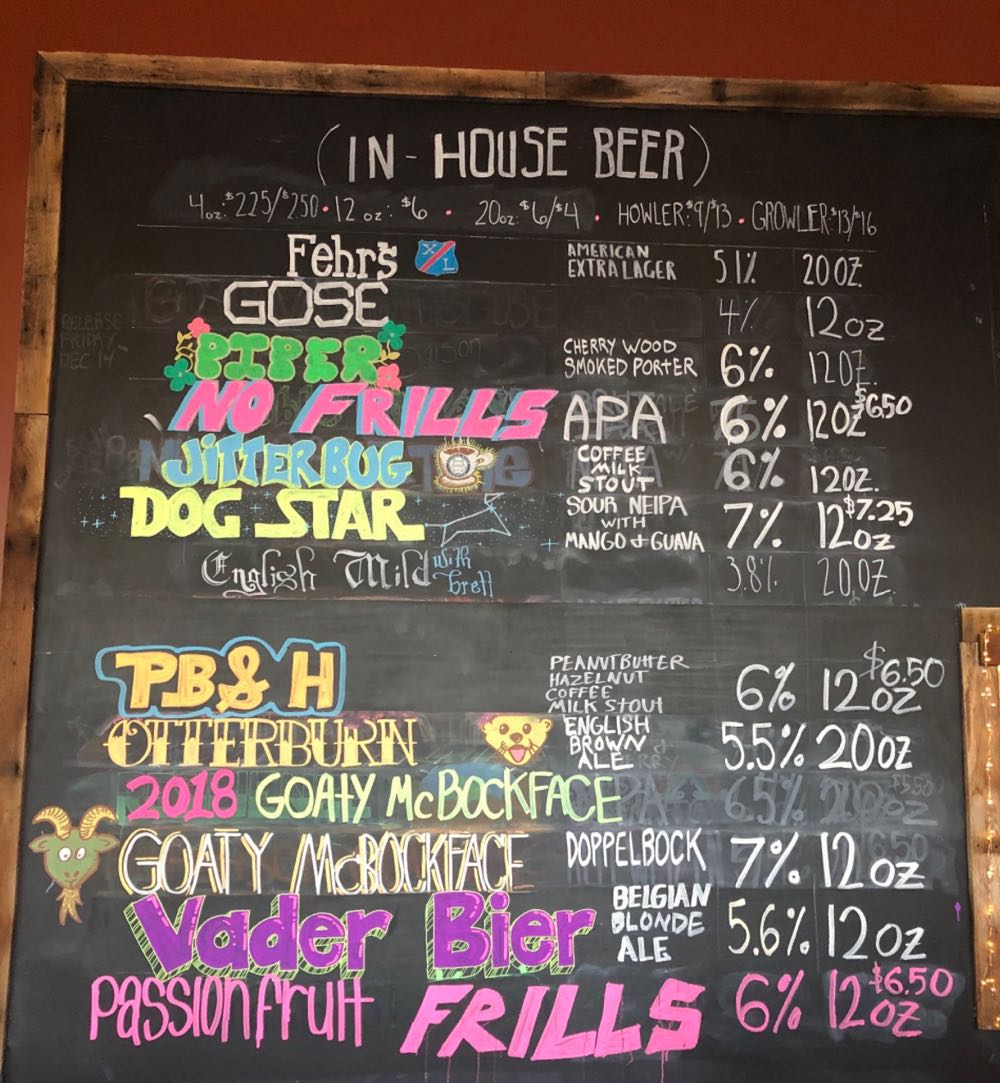 (IN-HOUSE BEER)
4oz:$2.25/$2.50 • 12 oz: $6 • 20oz: $6/$4 • HOWLER:$9/$13 • GROWLER:$13/$16
Fehrs XL AMERICAN EXTRA LAGER 5.1% 20OZ.
GOSE 4% 12oz
PIPER CHERRY WOOD SMOKED PORTER 6% 12OZ.
NO FRILLS APA 6% 12OZ $6.50
JITTERBUG COFFEE MILK STOUT 6% 12OZ.
DOG STAR SOUR NEIPA WITH MANGO & GUAVA 7% 12oz $7.25
English Mild with brett 3.8% 20OZ.
PB&H PEANUTBUTTER HAZELNUT COFFEE MILK STOUT 6% 12oz $6.50
OTTERBURN ENGLISH BROWN ALE 5.5% 20oz
2018 GOATY McBOCKFACE
GOATY McBOCKFACE DOPPELBOCK 7% 12oz
Vader Bier BELGIAN BLONDE ALE 5.6% 12oz
Passionfruit FRILLS 6% 12oz $6.50
RELEASE
FRIDAY
DEC 14